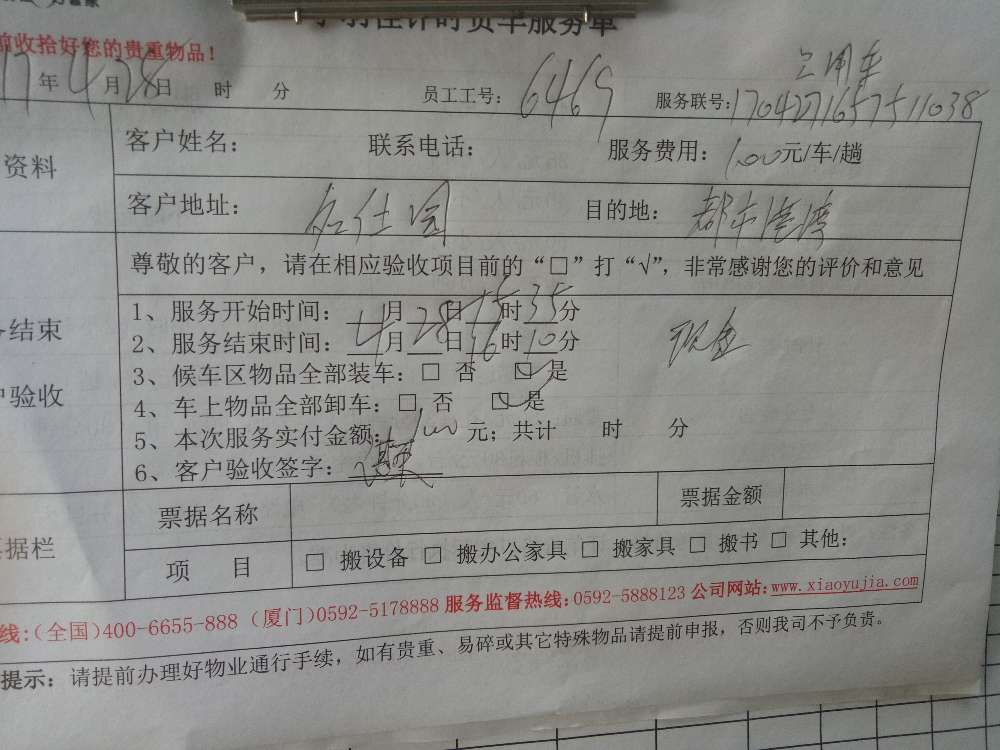 时货车服务单
前收拾好您的贵重物品！
17年4月28日 时 分 员工工号：6469 服务联号：1704271657511038
资料 客户姓名： 联系电话： 服务费用：100元/车/趟
客户地址：名仕园 目的地：都市港湾
尊敬的客户，请在相应验收项目前的“□”打“√”，非常感谢您的评价和意见
1、服务开始时间：4月28日15时35分
2、服务结束时间：4月28日16时10分 现金
结束
3、候车区物品全部装车：□ 否 ☑ 是
验收
4、车上物品全部卸车：□ 否 ☑ 是
5、本次服务实付金额：100元；共计 时 分
6、客户验收签字：
票据名称 票据金额
据栏
项 目 □ 搬设备 □ 搬办公家具 □ 搬家具 □ 搬书 □ 其他：
线：(全国)400-6655-888 (厦门)0592-5178888 服务监督热线：0592-5888123 公司网站：www.xiaoyujia.com
提示：请提前办理好物业通行手续，如有贵重、易碎或其它特殊物品请提前申报，否则我司不予负责。